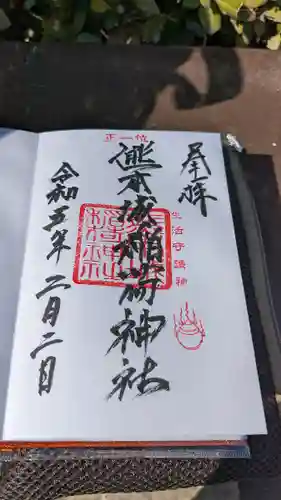 奉拝
正一位
熊本城稲荷神社
生活守護神
令和五年 二月二日